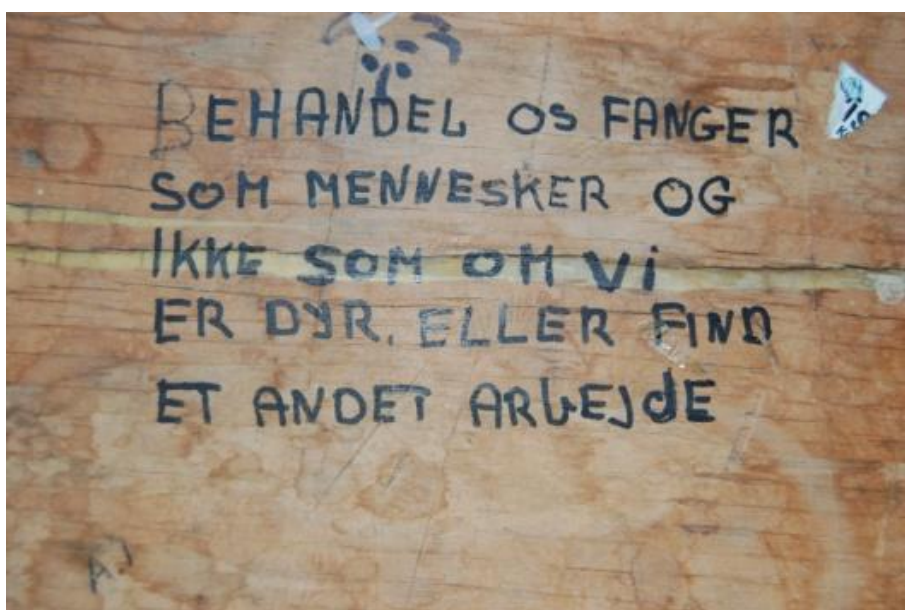 BEHANDEL OS FANGER
SOM MENNESKER OG
IKKE SOM OM Vi
ER DYR. ELLER FIND
ET ANDET ARbEJdE
AJ